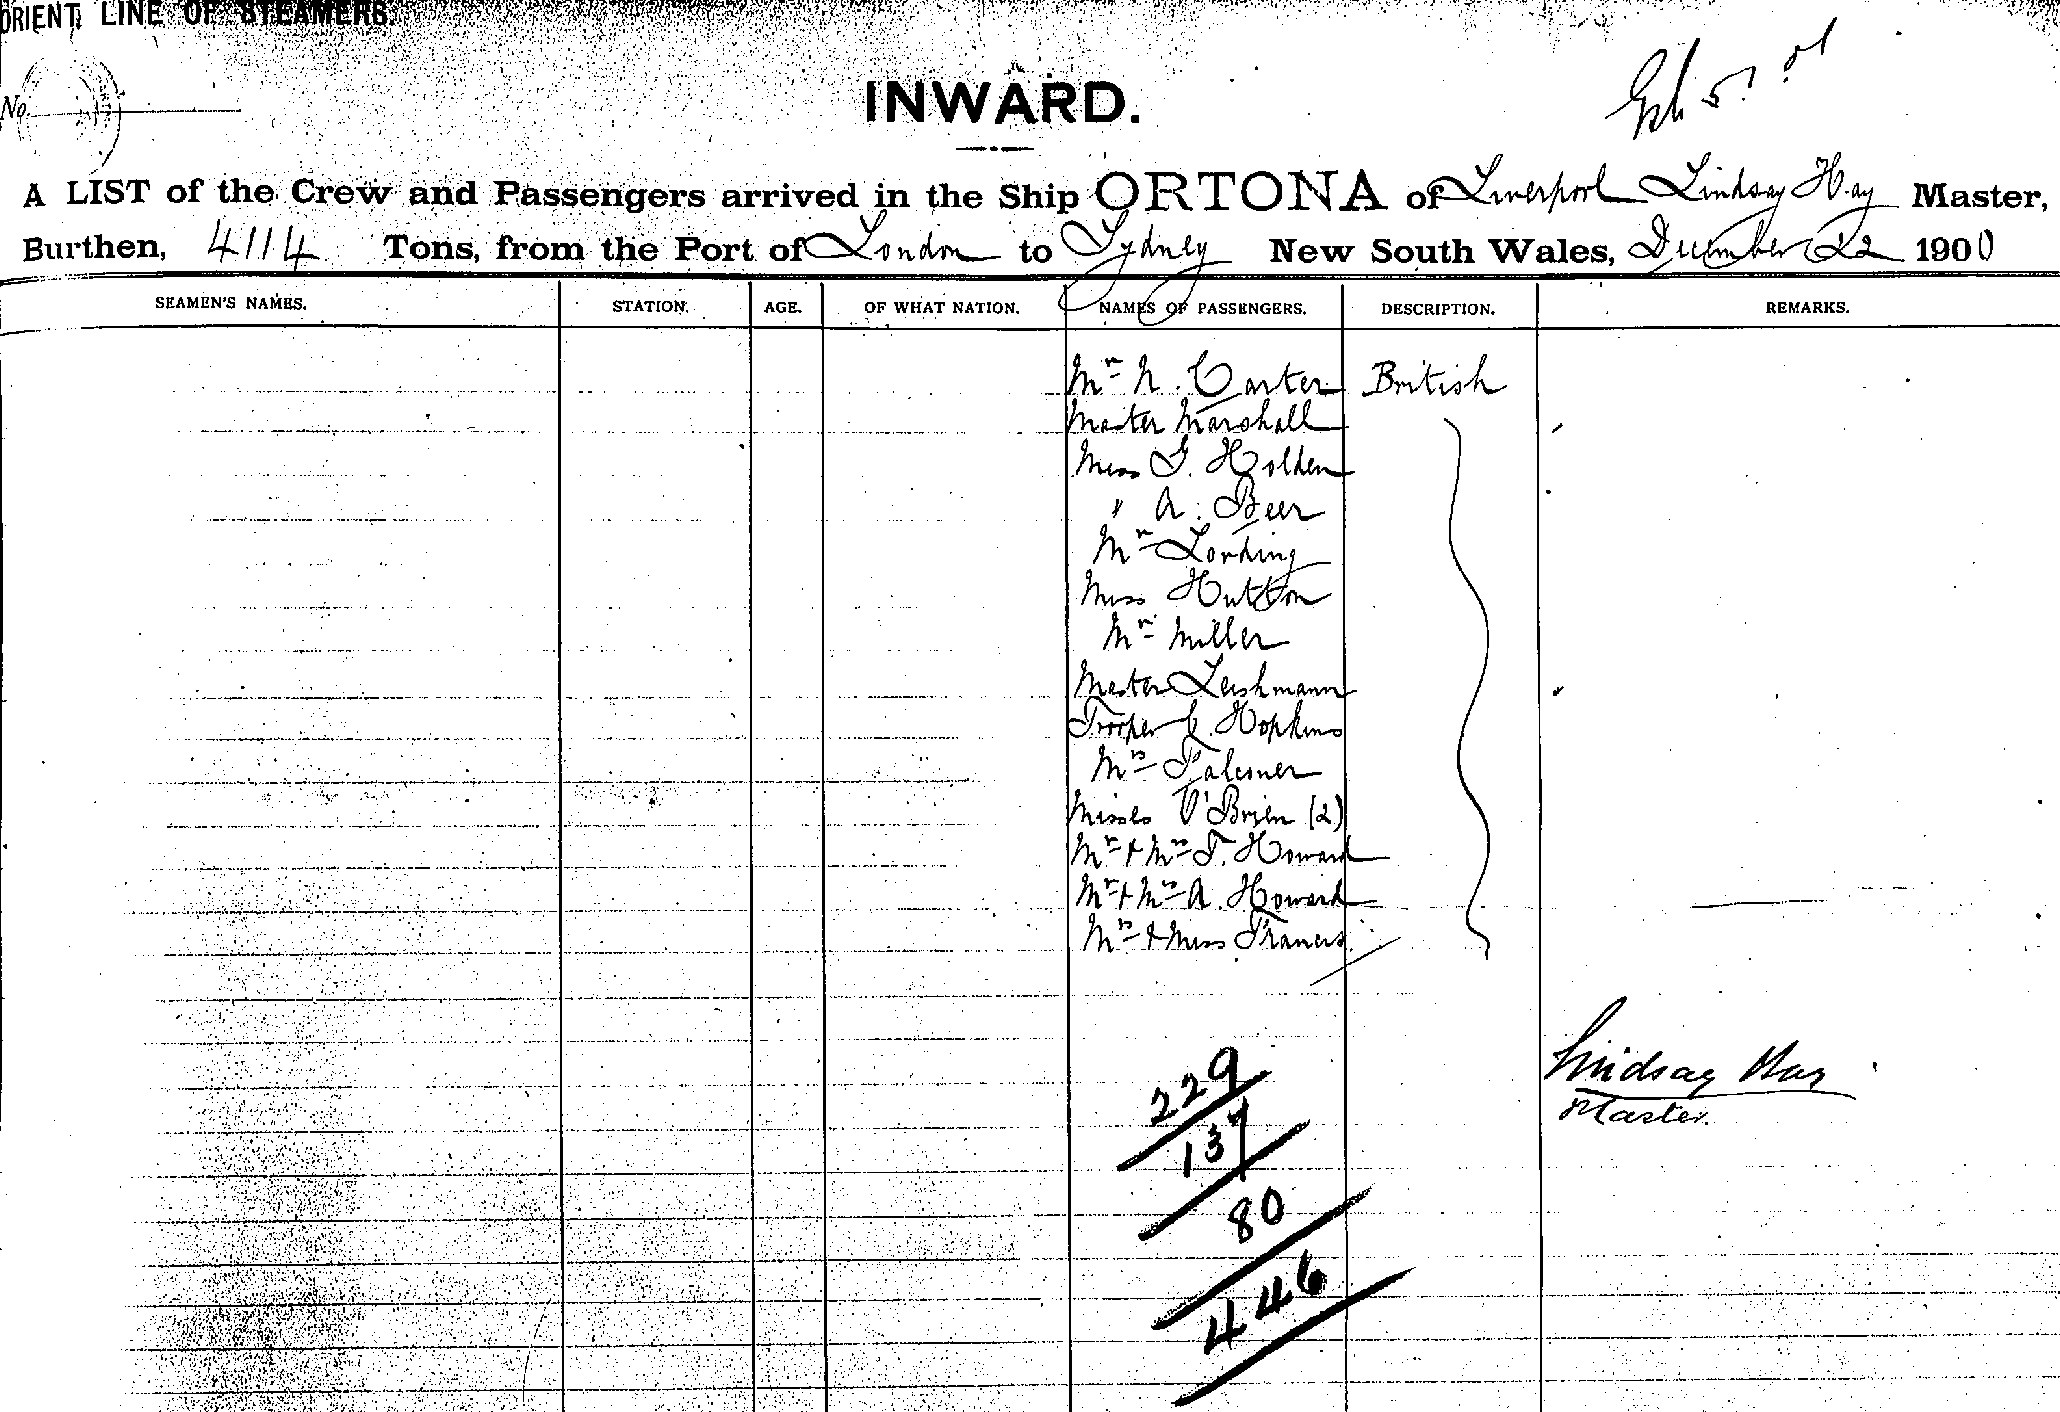 ORIENT LINE OF STEAMERS
No.
INWARD.
A LIST of the Crew and Passengers arrived in the Ship ORTONA of Liverpool Lindsay Hay Master,
Burthen, 4114 Tons, from the Port of London to Sydney New South Wales, December 22 1900
SEAMEN'S NAMES. STATION. AGE. OF WHAT NATION. NAMES OF PASSENGERS. DESCRIPTION. REMARKS.
Mr N. Carter British
Master Marshall
Miss G. Holden
" A. Beer
Mr Lording
Miss Hutton
Mr Miller
Master Leishmann
Trooper C. Hopkins
Mrs Falconer
Misses O'Brien (2)
Mr + Mrs F. Howard
Mr + Mrs A. Howard
Mrs + Miss Francis
Lindsay Hay
Master.
229
137
80
446